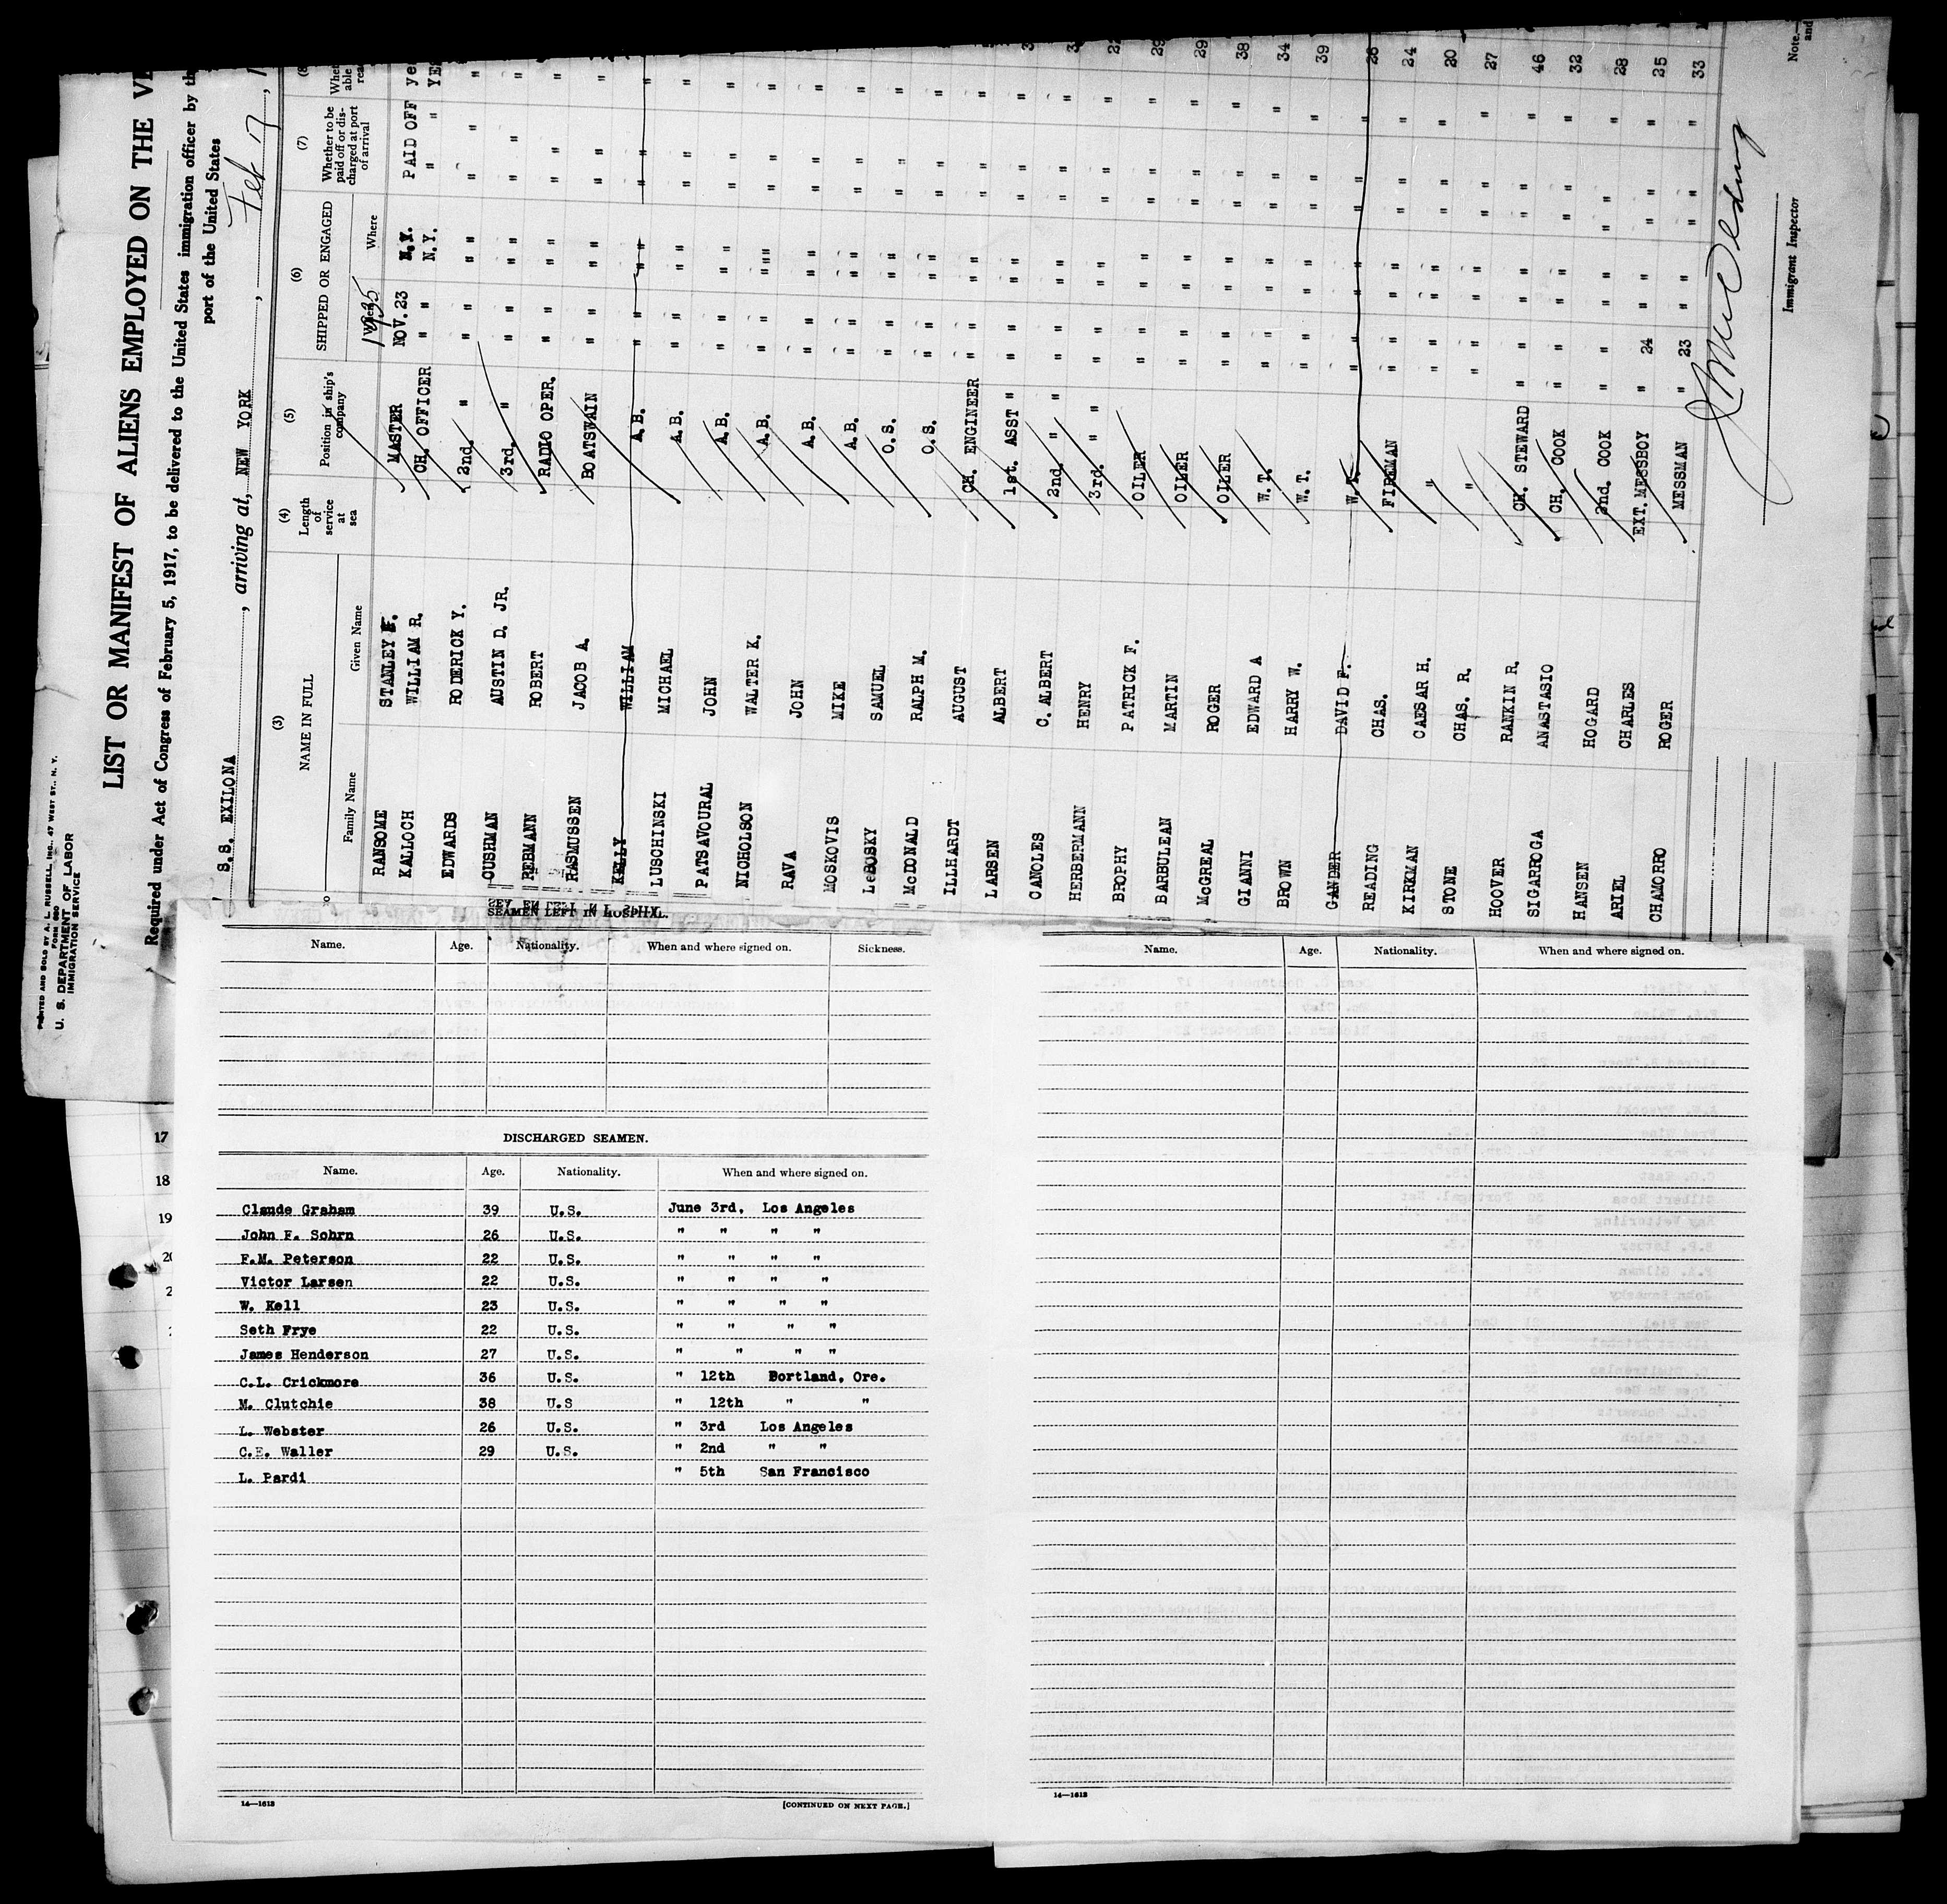 PRINTED AND SOLD BY A. L. RUSSELL, INC., 47 WEST ST., N. Y.
FORM 680
U. S. DEPARTMENT OF LABOR
IMMIGRATION SERVICE
LIST OR MANIFEST OF ALIENS EMPLOYED ON THE VE
Required under Act of Congress of February 5, 1917, to be delivered to the United States immigration officer by th
port of the United States
S.S. EXILONA, arriving at, NEW YORK, Feb 17, 1
(3) (4) (5) (6) (7) (8)
NAME IN FULL Length of service at sea Position in ship's company SHIPPED OR ENGAGED Whether to be paid off or discharged at port of arrival
Family Name Given Name When Where
1935
RANSOME STANLEY F. MASTER NOV. 23 N.Y. PAID OFF yes
KALLOCH WILLIAM R. CH. OFFICER " " N.Y. " " YES
EDWARDS RODERICK Y. 2nd. " " " " " " " "
CUSHMAN AUSTIN D. JR. 3rd. " " " " " " " "
REBMANN ROBERT RADIO OPER. " " " " " " "
RASMUSSEN JACOB A. BOATSWAIN " " " " " " "
KELLY WILLIAM A.B. " " " " " " "
LUSCHINSKI MICHAEL A.B. " " " " " " "
PATSAVOURAL JOHN A.B. " " " " " " "
NICHOLSON WALTER K. A.B. " " " " " " "
RAVA JOHN A.B. " " " " " " "
MOSKOVIS MIKE A.B. " " " " " " "
LeBOSKY SAMUEL O.S. " " " " " " "
McDONALD RALPH M. O.S. " " " " " " "
ILLHARDT AUGUST CH. ENGINEER " " " " " " "
LARSEN ALBERT 1st. ASST " " " " " " " "
CANOLES C. ALBERT 2nd. " " " " " " " "
HERBERMANN HENRY 3rd. " " " " " " " "
BROPHY PATRICK F. OILER " " " " " " " 22
BARBULEAN MARTIN OILER " " " " " " " 29
McGREAL ROGER OILER " " " " " " " 29
GIANNI EDWARD A W.T. " " " " " " " 38
BROWN HARRY W. W.T. " " " " " " " 34
GANDER DAVID F. W.T. " " " " " " " 39
READING CHAS. FIREMAN " " " " " " " 28
KIRKMAN CAESAR H. " " " " " " " " 24
STONE CHAS. R. " " " " " " " " 20
HOOVER RANKIN R. CH. STEWARD " " " " " " " 27
SIGARROGA ANASTASIO CH. COOK " " " " " " " 46
HANSEN HOGARD 2nd. COOK " " " " " " " 32
ARIEL CHARLES EXT. MESSBOY " 24 " " " " " 28
CHAMORRO ROGER MESSMAN " 23 " " " " " 25
33
Immigrant Inspector
Note.—
and
SEAMEN LEFT IN HOSPITAL.
Name. Age. Nationality. When and where signed on. Sickness.
DISCHARGED SEAMEN.
Name. Age. Nationality. When and where signed on.
Claude Graham 39 U.S. June 3rd, Los Angeles
John F. Sohrn 26 U.S. " " " "
F.M. Peterson 22 U.S. " " " "
Victor Larsen 22 U.S. " " " "
W. Kell 23 U.S. " " " "
Seth Frye 22 U.S. " " " "
James Henderson 27 U.S. " " " "
C.L. Crickmore 36 U.S. " 12th Portland, Ore.
M. Clutchie 38 U.S " 12th " "
L. Webster 26 U.S. " 3rd Los Angeles
C.E. Waller 29 U.S. " 2nd " "
L. Pardi " 5th San Francisco
14—1613
[CONTINUED ON NEXT PAGE.]
Name. Age. Nationality. When and where signed on.
14—1613
17
18
19
20